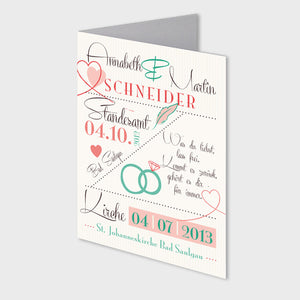 Annabeth & Martin
SCHNEIDER
Standesamt
04.10.
Was du liebst,
lass frei.
Kommt es zurück,
gehört es dir
für immer.
Kirche 04 07 2013
St. Johanneskirche Bad Saulgau